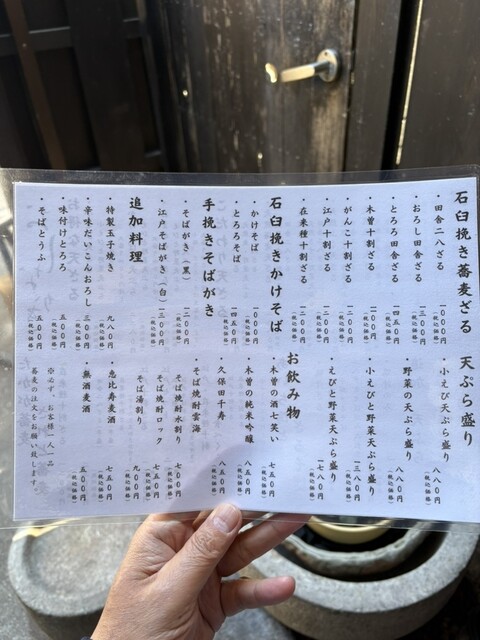 石臼挽き蕎麦ざる
・田舎二八ざる 一〇〇〇円(税込価格)
・おろし田舎ざる 一三〇〇円(税込価格)
・とろろ田舎ざる 一四五〇円(税込価格)
・木曽十割ざる 一一〇〇円(税込価格)
・がんこ十割ざる 一二〇〇円(税込価格)
・江戸十割ざる 一二〇〇円(税込価格)
・在来種十割ざる 一二〇〇円(税込価格)
石臼挽きかけそば
・かけそば 一〇〇〇円(税込価格)
・とろろそば 一四五〇円(税込価格)
手挽きそばがき
・そばがき(黒) 一二〇〇円(税込価格)
・江戸そばがき(白) 一三〇〇円(税込価格)
追加料理
・特製玉子焼き 九八〇円(税込価格)
・辛味だいこんおろし 三〇〇円(税込価格)
・味付けとろろ 五〇〇円(税込価格)
・そばとうふ 五〇〇円(税込価格)
天ぷら盛り
・小えび天ぷら盛り 八八〇円(税込価格)
・野菜の天ぷら盛り 八八〇円(税込価格)
・小えびと野菜天ぷら盛り 一三八〇円(税込価格)
・えびと野菜天ぷら盛り 一七八〇円(税込価格)
お飲み物
・木曽の酒七笑い 七五〇円(税込価格)
・木曽の純米吟醸 八五〇円(税込価格)
・久保田千寿 八五〇円(税込価格)
・そば焼酎雲海
そば焼酎水割り 七〇〇円(税込価格)
そば焼酎ロック 七五〇円(税込価格)
そば湯割り 九〇〇円(税込価格)
・恵比寿麦酒 七五〇円(税込価格)
・無酒麦酒 五〇〇円(税込価格)
※必ず、お客様一人一品
蕎麦の注文をお願い致します。